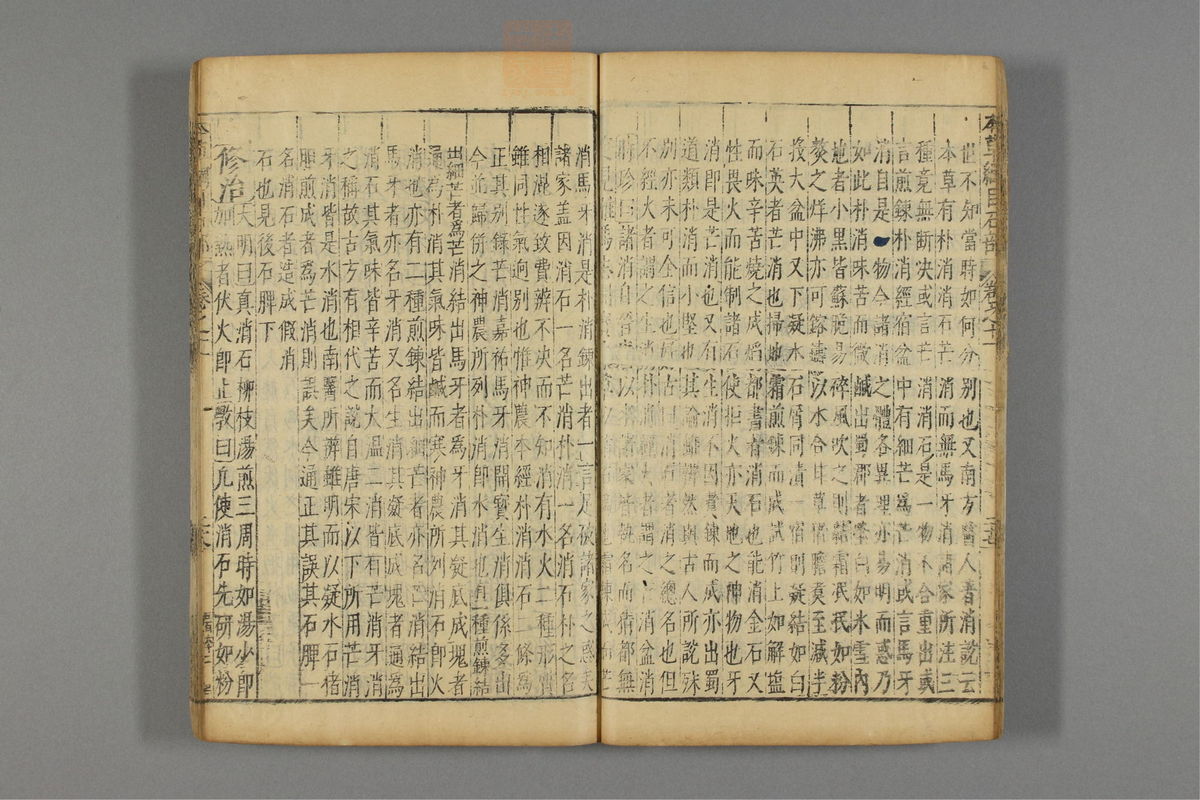 本草綱目石部
世不知當時如何分別也又南方醫人著消說云
本草有朴消消石芒消而無馬牙消諸家所注三
種竟無斷決或言芒消消石是一物不合重出或
言煎鍊朴消經宿盆中有細芒為芒消或言馬牙
消自是一物今諸消之體各異理亦易明而惑乃
如此朴消味苦而微鹹出蜀郡者瑩白如冰雪內
地者小黑皆蘇脆易碎風吹之則結霜泯泯如粉
熬之烊沸亦可鎔鑄以水合甘草猪膽煮至減半
投大盆中又下凝水石屑同漬一宿則凝結如白
石英者芒消也掃地霜煎鍊而成試竹上如解鹽
而味辛苦燒之成焰都盡者消石也能消金石又
性畏火而能制諸石使拒火亦天地之神物也牙
消即是芒消也又有生消不因煮鍊而成亦出蜀
道類朴消而小堅也其論雖辨然與古人所說殊
別亦未可全信也
不經火者謂之生消朴消經火者謂之盆消
消馬牙消是朴消鍊出者一言足破諸家之惑矣
諸家蓋因消石一名芒消朴消一名消石朴之名
相混遂致費辨不決而不知消有水火二種形質
雖同性氣迥別也惟神農本經朴消消石二條為
正其別錄芒消嘉祐馬牙消開寶生消俱係多出
今並歸併之神農所列朴消即水消也有二種煎鍊結
出細芒者為芒消結出馬牙者為牙消其凝底成塊者
通為朴消其氣味皆鹹而寒神農所列消石即火
消也亦有二種煎鍊結出細芒者亦名芒消結出
馬牙者亦名牙消又名生消其凝底成塊者通為
消石其氣味皆辛苦而大溫二消皆有芒消牙消
之稱故古方有相代之說自唐宋以下所用芒消
牙消皆是水消也南醫所辨雖明而以凝水石猪
膽煎成者為芒消則誤矣今通正其誤其石脾一
名消石者造成假消
石也見後石脾下
修治大明曰真消石柳枝湯煎三周時如湯少即
加熱者伏火即止斅曰凡使消石先研如粉